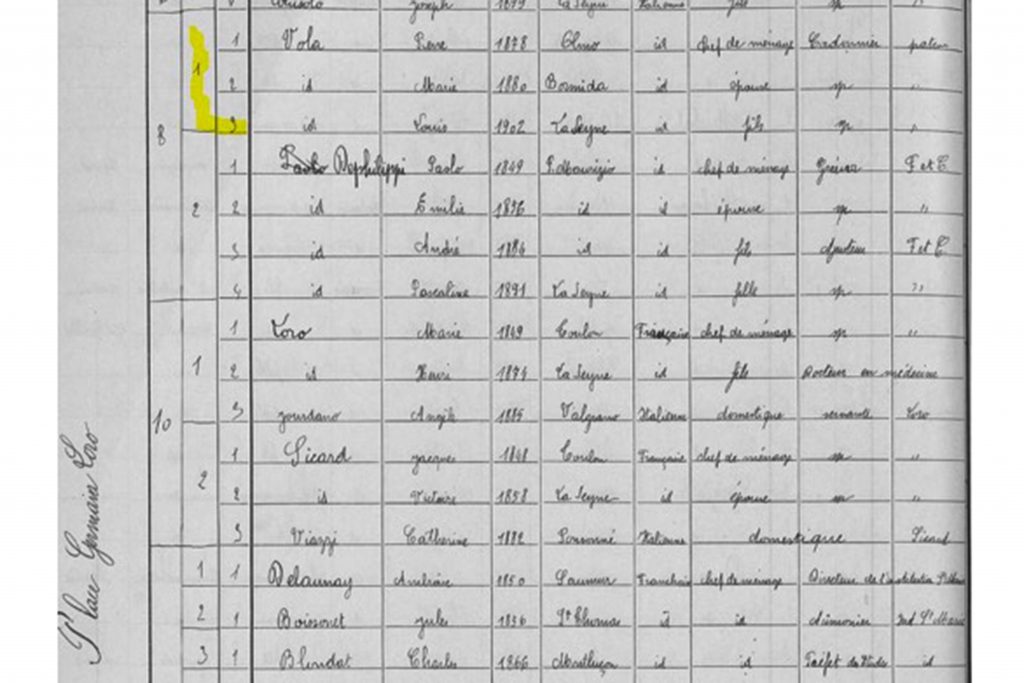 Joseph 1899 La Seyne Italienne fils
1 Vola 1878 Olmo id chef de ménage Cordonnier patron
1
2 id Marie 1880 Bormida id épouse sp "
3 id Louis 1902 La Seyne id fils sp "
8
1 Dephilippi Paolo 1849 id chef de ménage F et C
2 2 id Emilie 1856 id id épouse sp "
3 id André 1884 id id fils ajusteur F et C
4 id Pascaline 1891 La Seyne id fille sp "
1 Loro Marie 1849 Toulon Française chef de ménage sp "
1 2 id Henri 1874 La Seyne id fils Docteur en médecine
10 3 Jourdano Angèle 1885 Italienne domestique servante Loro
1 Sicard Jacques 1848 Toulon Française chef de ménage sp "
2 2 id Victoire 1858 La Seyne id épouse sp "
3 Viazzi Catherine 1882 Italienne domestique Sicard
Place Germain Loro
1 1 Delaunay Ambroise 1850 Saumur chef de ménage Directeur de l'institution
2 1 Boissonet Jules 1856 St Thomas id id aumonier Ind Ste Marie
3 1 Blondat Charles 1866 Montluçon id id Préfet des Etudes id